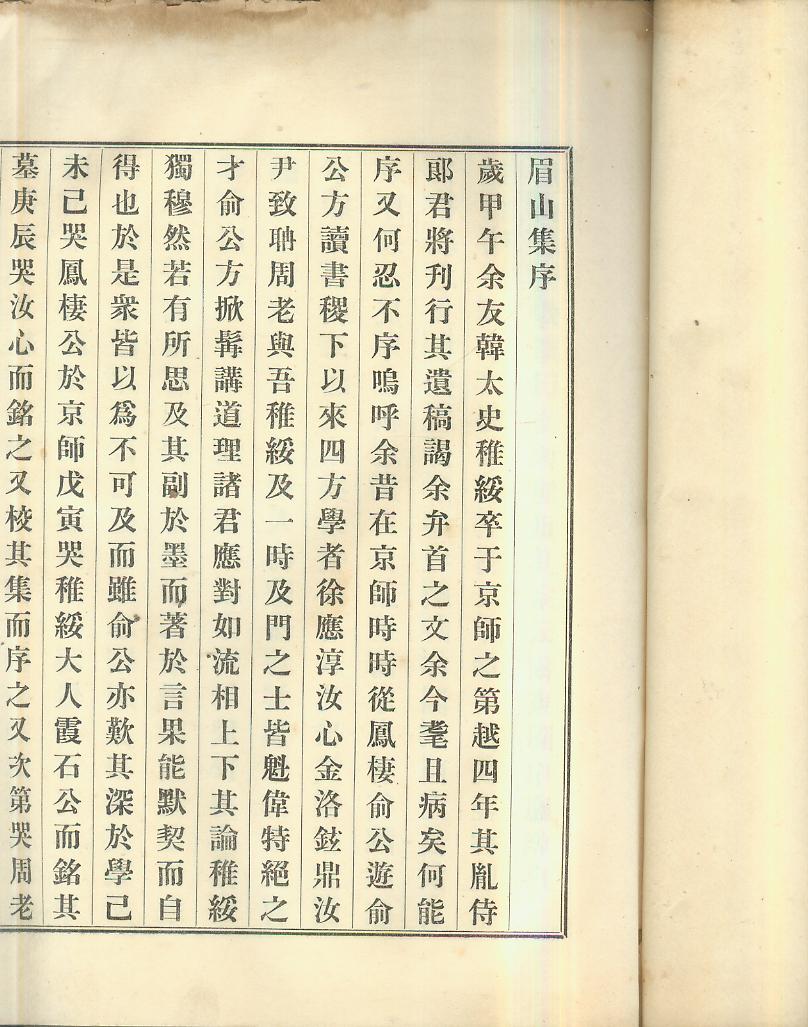 眉山集序
歲甲午余友韓太史稚綏卒于京師之第越四年其胤侍
郞君將刊行其遺稿謁余弁首之文余今耄且病矣何能
序又何忍不序嗚呼余昔在京師時時從鳳棲俞公遊俞
公方讀書稷下以來四方學者徐應淳汝心金洛鉉鼎汝
尹致聃周老與吾稚綏及一時及門之士皆魁偉特絕之
才俞公方掀髯講道理諸君應對如流相上下其論稚綏
獨穆然若有所思及其副於墨而著於言果能默契而自
得也於是衆皆以爲不可及而雖俞公亦歎其深於學已
未己哭鳳棲公於京師戊寅哭稚綏大人霞石公而銘其
墓庚辰哭汝心而銘之又棱其集而序之又次第哭周老